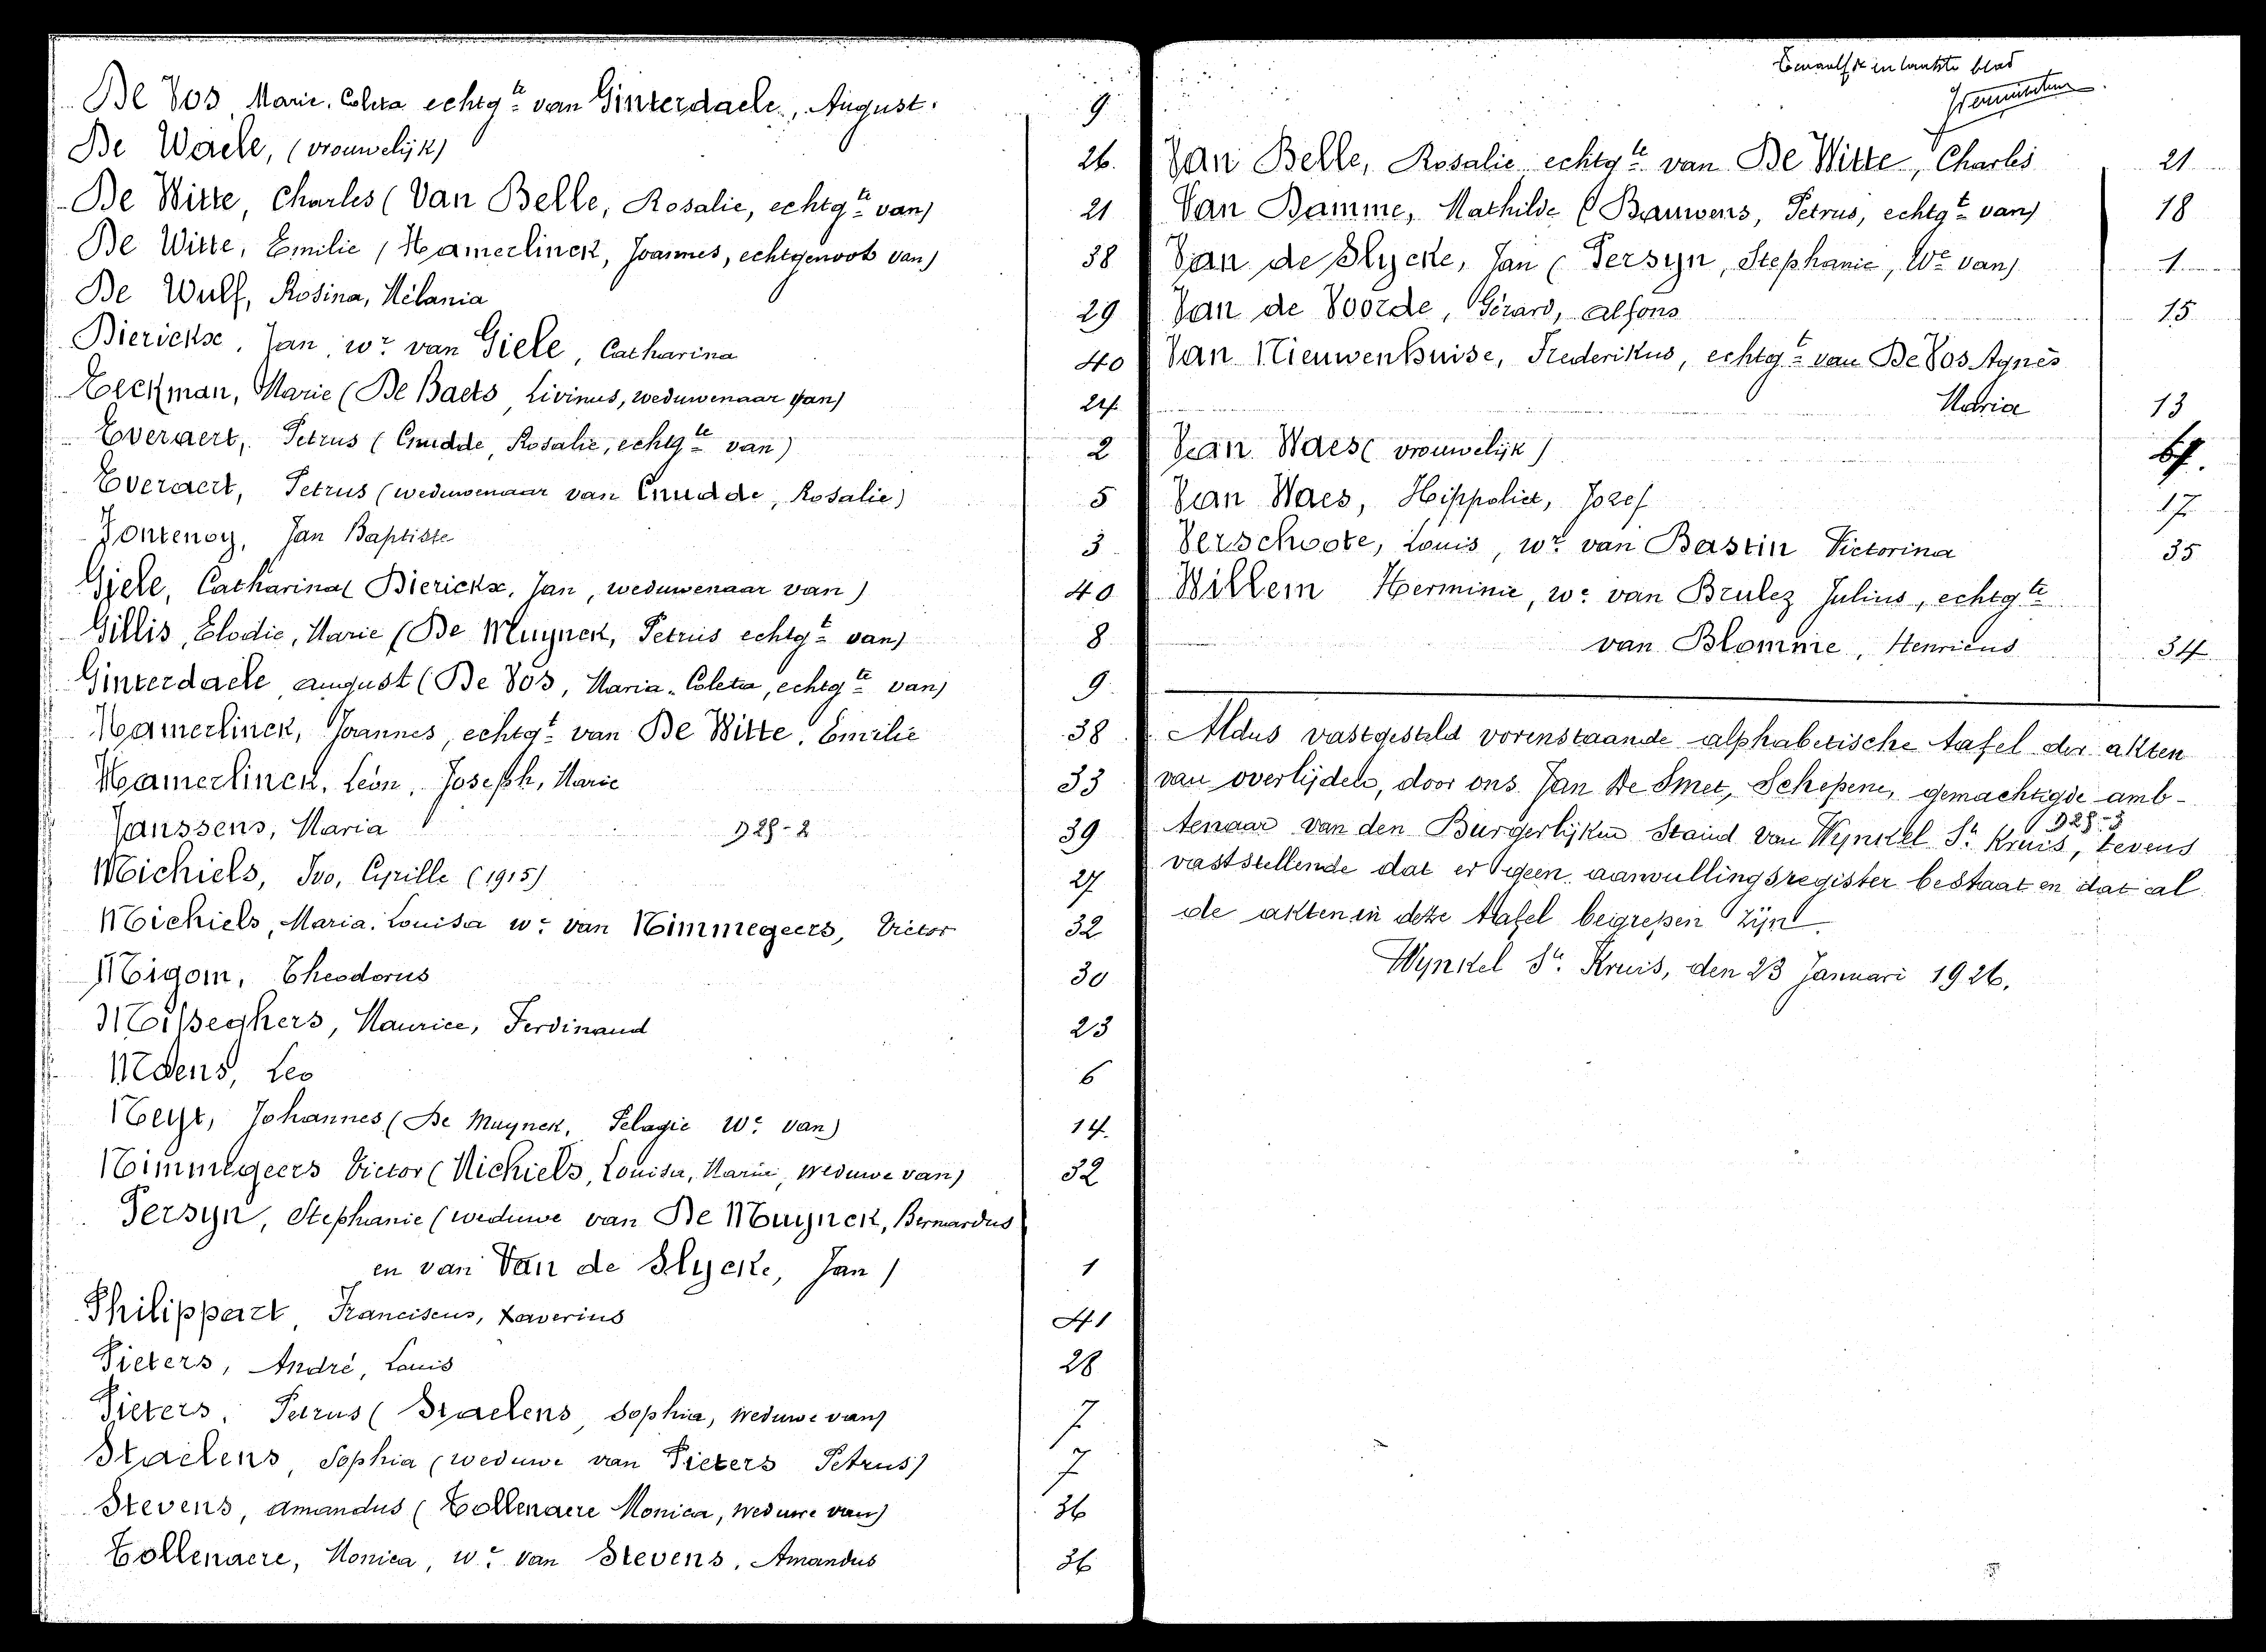 De Vos Marie, Coleta echtg.te van Ginterdaele, August. 9
De Waele, (vrouwelijk) 26.
De Witte, Charles (Van Belle, Rosalie, echtg.te van) 21
De Witte, Emilie (Hamerlinck, Joannes, echtgenoot van) 38
De Wulf, Rosina, Mélania 29
Dierickx, Jan, wr van Giele, Catharina 40
Eeckman, Marie (De Baets, Livinus, weduwenaar van) 24
Everaert, Petrus (Cnudde, Rosalie, echtg.te van) 2
Everaert, Petrus (weduwenaar van Cnudde, Rosalie) 5
Fontenoy, Jan Baptiste 3
Giele, Catharina (Dierickx, Jan, weduwenaar van) 40
Gillis, Elodie, Marie (De Muynck, Petrus echtg.t van) 8
Ginterdaele august (De Vos, Maria-Coleta, echtg.te van) 9
Hamerlinck, Joannes, echtg.t van De Witte, Emilie 38
Hamerlinck, Léon, Joseph, Marie 33
Janssens, Maria D28-2 39
Michiels, Ivo, Cyrille (1915) 27
Michiels, Maria-Louisa we van Nimmegeers, Victor 32
Migom, Theodorus 30
Misseghers, Maurice, Ferdinand 23
Neens, Leo 6
Neyt, Johannes (De Muynck, Pelagie We van) 14.
Nimmegeers Victor (Michiels, Louisa, Maria, Weduwe van) 32
Persyn, Stephanie (weduwe van De Muynck, Bernardus
en van Van de Slycke, Jan) 1
Philippart, Franciscus, Xaverius 41
Pieters, André, Louis 28
Pieters, Petrus (Staelens, Sophia, Weduwe van) 7
Staelens, Sophia (weduwe van Pieters Petrus) 7
Stevens, Amandus (Tollenaere Monica, Weduwe van) 36
Tollenaere, Monica, we van Stevens, Amandus 36
blad
Van Belle, Rosalie echtg.te van De Witte, Charles 21
Van Damme, Mathilde (Bauwens, Petrus, echtg.t van) 18
Van de Slycke, Jan (Persyn, Stephanie, We van) 1
Van de Voorde, Gérard, Alfons 15
Van Nieuwenhuise, Frederikus, echtg.t van De Vos Agnès
Maria 13
Van Waes (vrouwelijk)
Van Waes, Hippoliet, Jozef 17
Verschoote, Louis, wr van Bastin Victorina 35
Willem Herminie, we van Brulez Julius, echtg.te
van Blomme, Henricus 34
Aldus vastgesteld vorenstaande alphabetische tafel der akten
van overlijden, door ons Jan De Smet, Schepene, gemachtigde amb-
tenaar van den Burgerlijken Stand van Wynkel St Kruis, tevens D28-3
vaststellende dat er geen aanvullingsregister bestaat en dat al
de akten in deze tafel begrepen zijn.
Wynkel St. Kruis, den 23 Januari 1926.